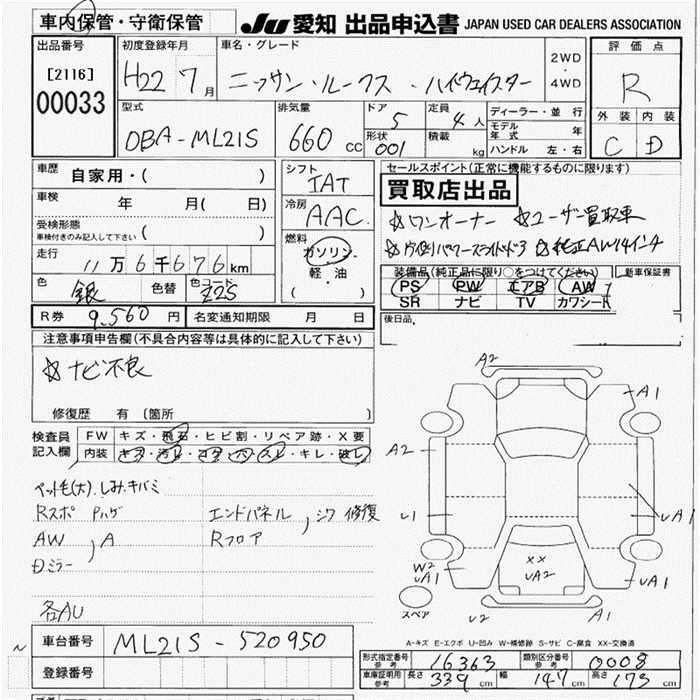 車内保管・守衛保管
JU 愛知 出品申込書 JAPAN USED CAR DEALERS ASSOCIATION
出品番号
[2116]
00033
初度登録年月
H22 7月
車名・グレード
ニッサン・ルークス・ハイウェイスター
2WD
・
4WD
評価点
R
外装 内装
C D
型式
DBA-ML21S
排気量
660 cc
ドア
5
形状
001
定員
4人
積載
kg
ディーラー・並行
モデル年式 年
ハンドル 左・右
車歴
自家用・( )
車検
年 月( 日)
受検形態
車検付きのみ記入して下さい ( )
走行
11万6千676km
色
銀
色替
色コード
Z2S
シフト
IAT
冷房
AAC
燃料
ガソリン
軽・油
( )
セールスポイント(正常に機能するものに限ります)
買取店出品
☆ワンオーナー ☆ユーザー買取車
☆純正AW14インチ
装備品(純正品に限り○をつけてください)
PS PW エアB AW
SR ナビ TV カワシート
新車保証書
後日品
R券 9,560円
名変通知期限 月 日
注意事項申告欄(不具合内容等は具体的に記入して下さい)
☆ナビ不良
修復歴 有 (箇所 )
検査員記入欄
FW キズ・飛石・ヒビ割・リペア跡・X要
内装 キズ・汚レ・コゲ・穴・スレ・キレ・破レ
ペット毛(大).しみ.キバミ
Rスポ Pハゲ
AW, A
Dミラー
エンドパネル, シワ 修復
Rフロア
各AU
A2
A1
A2
U1
UA1
W2
UA1
XX
UA2
UA1
スペア
U2
A1
A-キズ E-エクボ U-凹み W-補修跡 S-サビ C-腐食 XX-交換済
車台番号 ML21S-520950
登録番号
形式指定番号 参考 16363
類別区分番号 参考 0008
車庫証明用 参考 長さ 339cm 幅 147cm 高さ 173cm